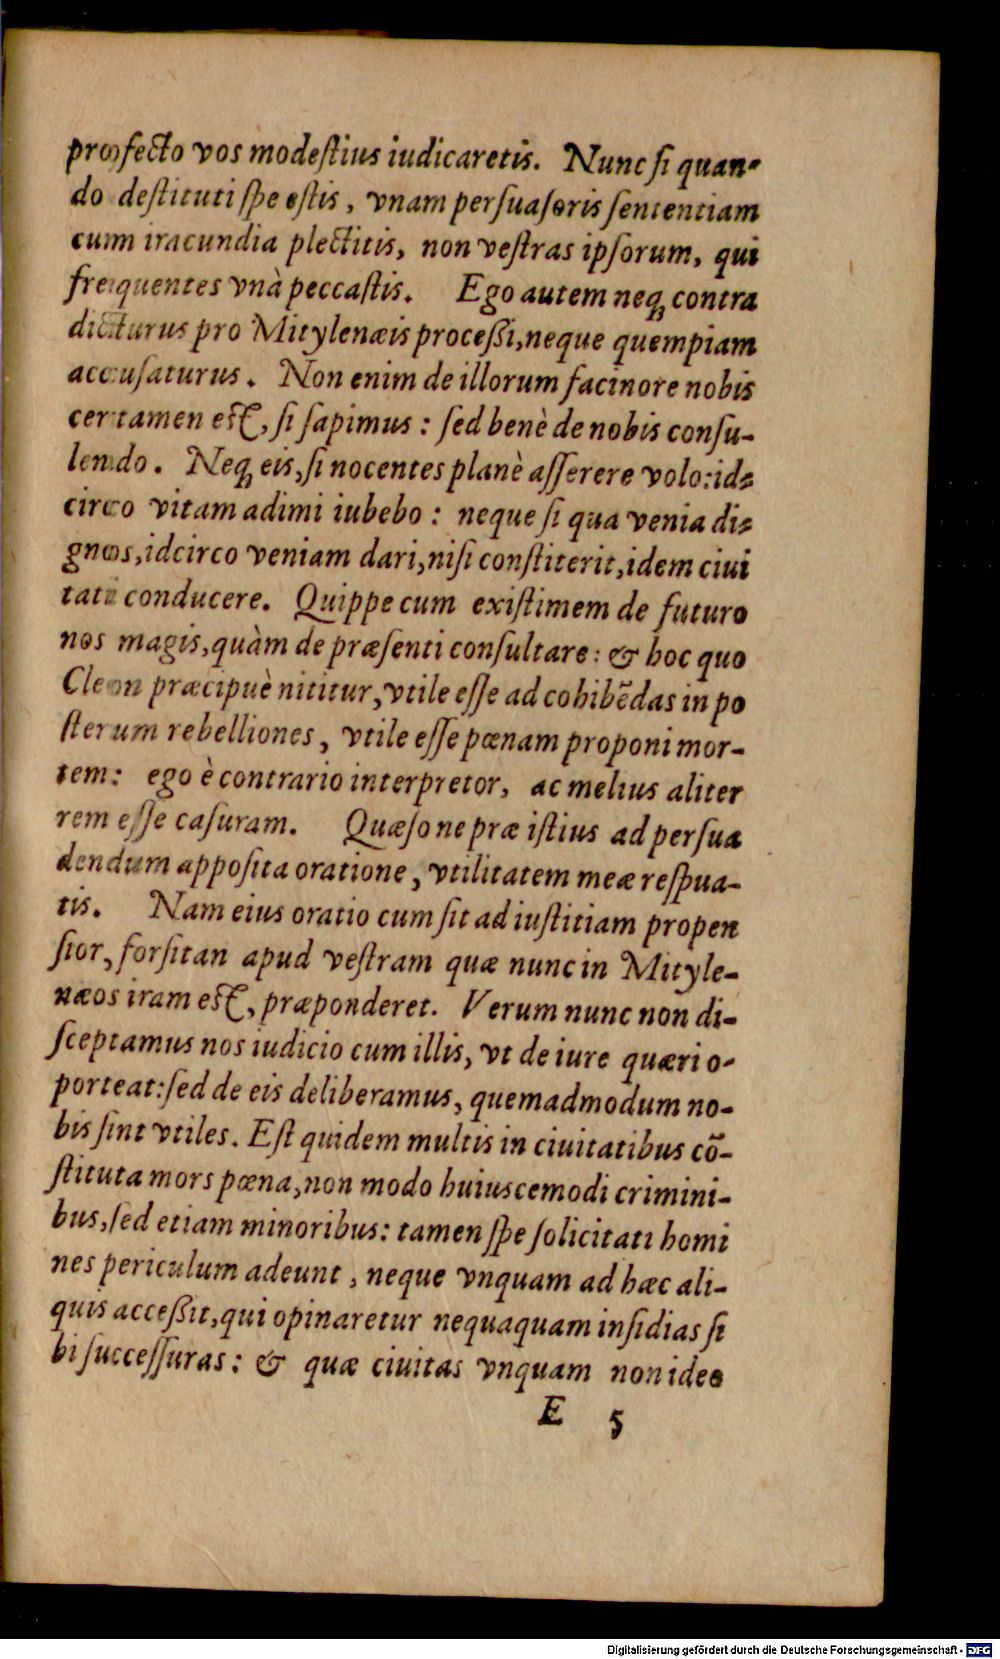 profecto vos modeſtius iudicaretis. Nunc ſi quan-
do deſtituti ſpe eſtis, vnam perſuaſoris ſententiam
cum iracundia plectitis, non veſtras ipſorum, qui
frequentes vnà peccaſtis. Ego autem neqꝫ contra
dicturus pro Mitylenæis proceßi, neque quempiam
accuſaturus. Non enim de illorum facinore nobis
certamen eſt, ſi ſapimus: ſed benè de nobis conſu-
lendo. Neqꝫ eis, ſi nocentes planè aſſerere volo: id-
circo vitam adimi iubebo: neque ſi qua venia di-
gnos, idcirco veniam dari, niſi conſtiterit, idem ciui
tati conducere. Quippe cum exiſtimem de futuro
nos magis, quàm de præſenti conſultare: & hoc quo
Cleon præcipuè nititur, vtile eſſe ad cohibẽdas in po
ſterum rebelliones, vtile eſſe pœnam proponi mor-
tem: ego è contrario interpretor, ac melius aliter
rem eſſe caſuram. Quæſo ne præ iſtius ad perſua
dendum appoſita oratione, vtilitatem meæ reſpua-
tis. Nam eius oratio cum ſit ad iuſtitiam propen
ſior, forſitan apud veſtram quæ nunc in Mityle-
næos iram eſt, præponderet. Verum nunc non di-
ſceptamus nos iudicio cum illis, vt de iure quæri o-
porteat: ſed de eis deliberamus, quemadmodum no-
bis ſint vtiles. Eſt quidem multis in ciuitatibus cõ-
ſtituta mors pœna, non modo huiuscemodi crimini-
bus, ſed etiam minoribus: tamen ſpe ſolicitati homi
nes periculum adeunt, neque vnquam ad hæc ali-
quis acceßit, qui opinaretur nequaquam inſidias ſi
bi ſucceſſuras: & quæ ciuitas vnquam non ideo
E 5
Digitalisierung gefördert durch die Deutsche Forschungsgemeinschaft - DFG